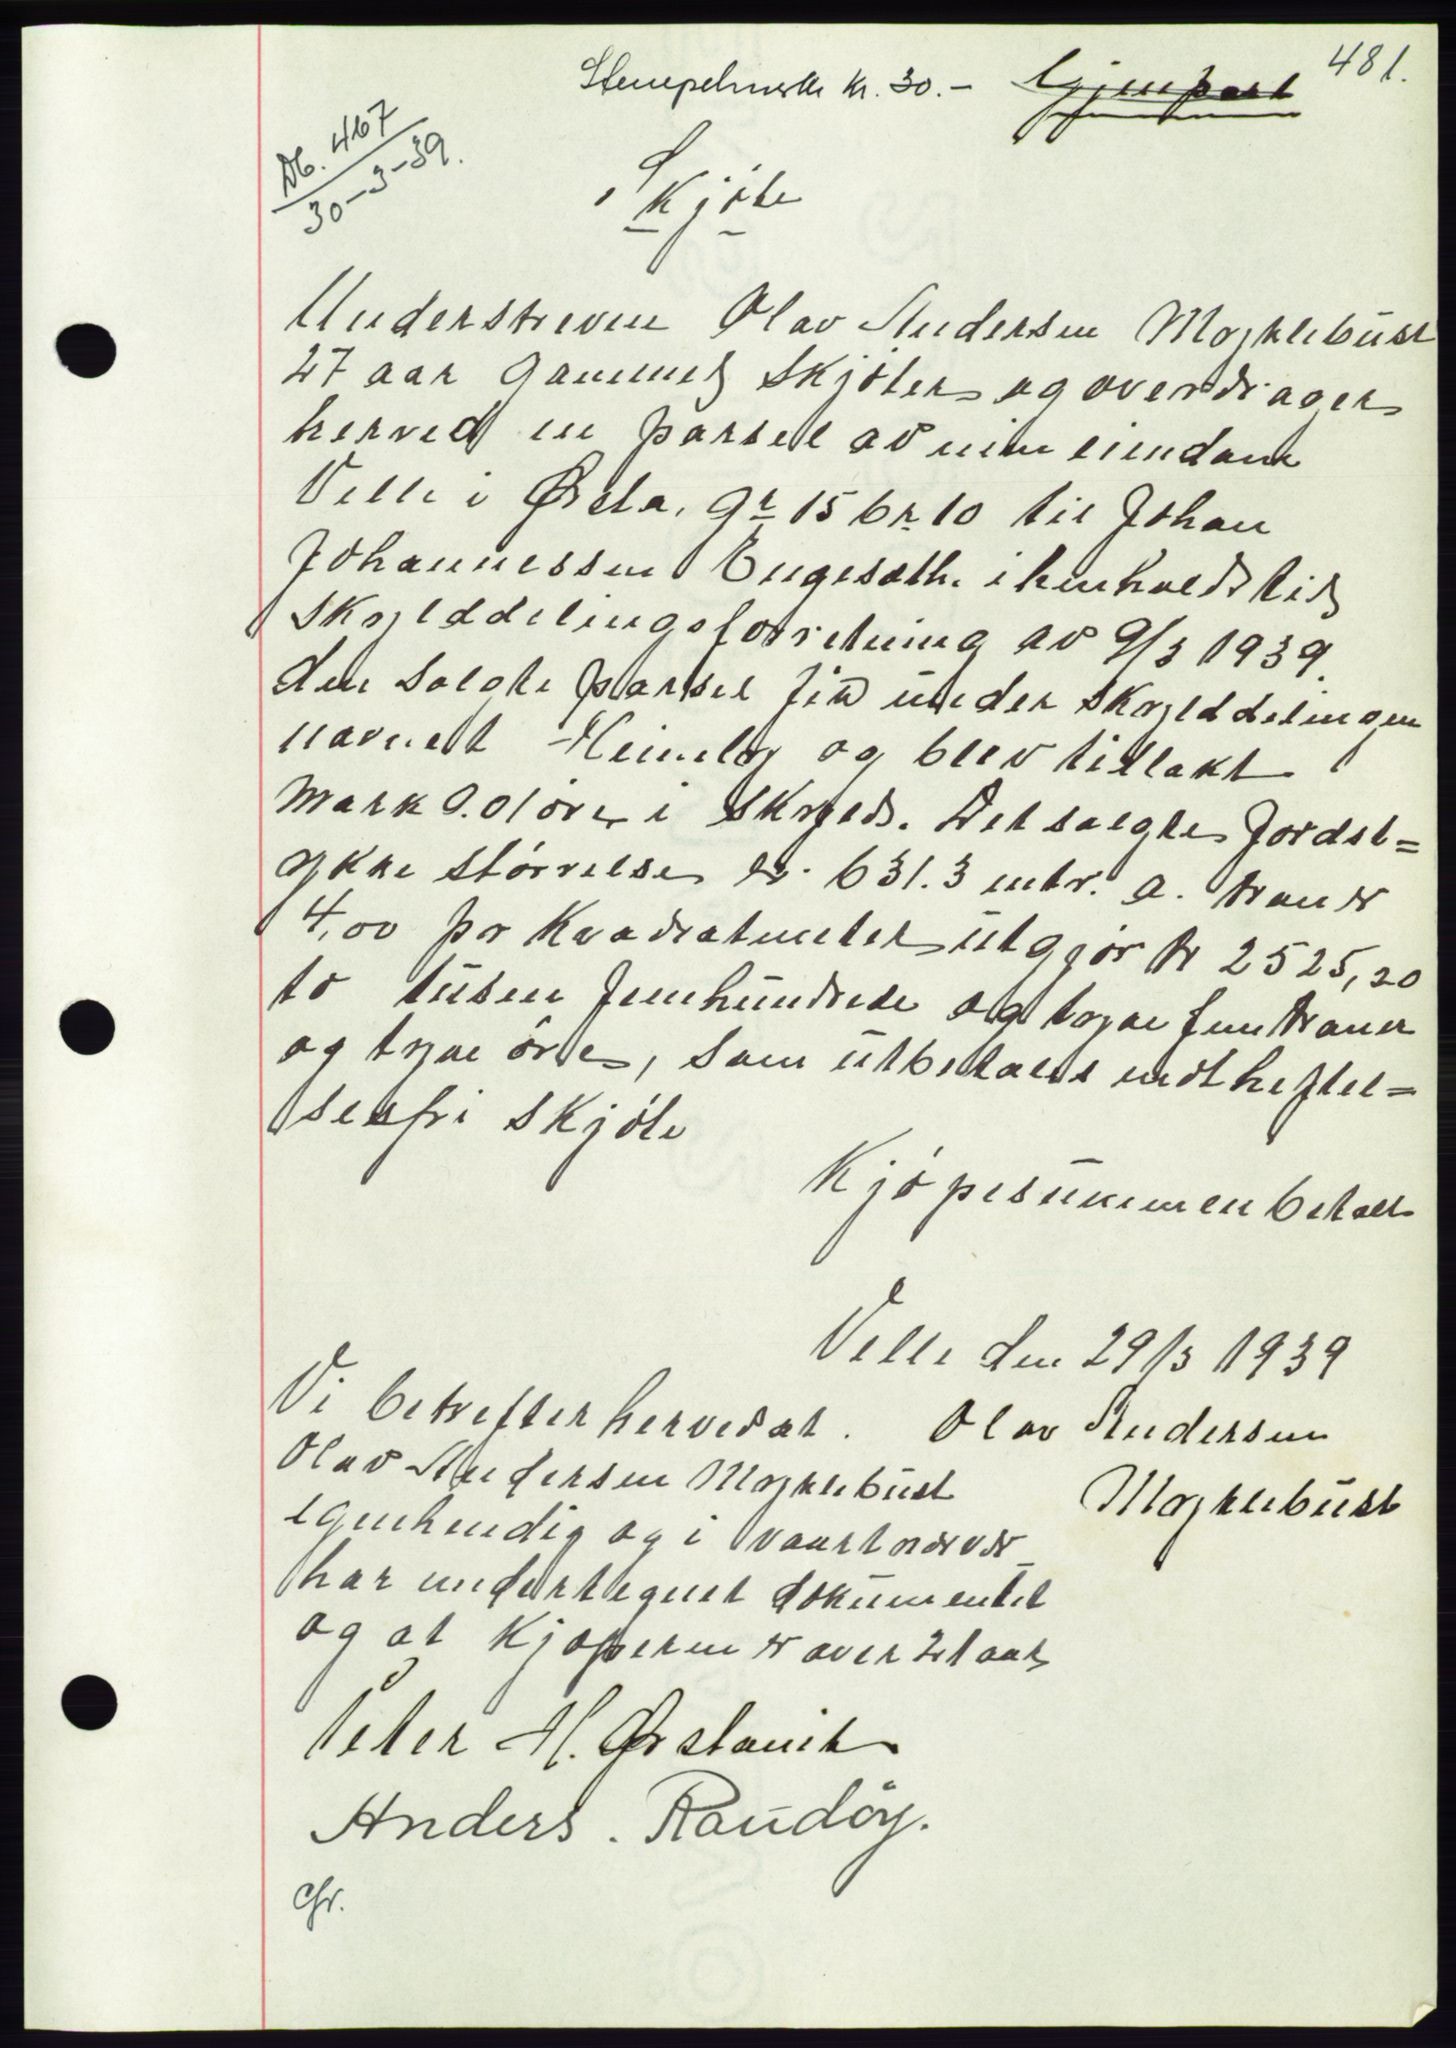 481.
Stempelmerke kr. 30.- Gjenpart
Db. 467
30-3-39.
Skjöte
Underskreven Olav Andersen Myklebust
27 aar gammel skjöter og overdrager
herved en parsel av min eiendom
Velle i Ørsta. gr 15 br 10 til Johan
Johannessen Engeseth. i henhold til
skylddelingsforretning av 9/3 1939.
den solgte parsel fik under skylddelingen
navnet Heimly og blev tillakt
Mark 0.01 öre i skyld. Det solgte jordst=
ykke störrelse er. 631.3 mtr. a. kroner
4,00 pr kvadratmeter utgjör kr 2525,20
to tusen femhundrede og tyve fem kroner
og tyve öre, som utbetales mot heftel=
sesfri skjöte
Kjöpesummen betalt
Velle den 29/3 1939
Vi betrefter herved at. Olav Andersen
Olav Andersen Myklebust Myklebust
egenhendig og i vaart nærvær
har undertegnet dokumentet
og at kjøperen er over 21 aar
Peter H. Ørstavik
Anders. Raudöy.